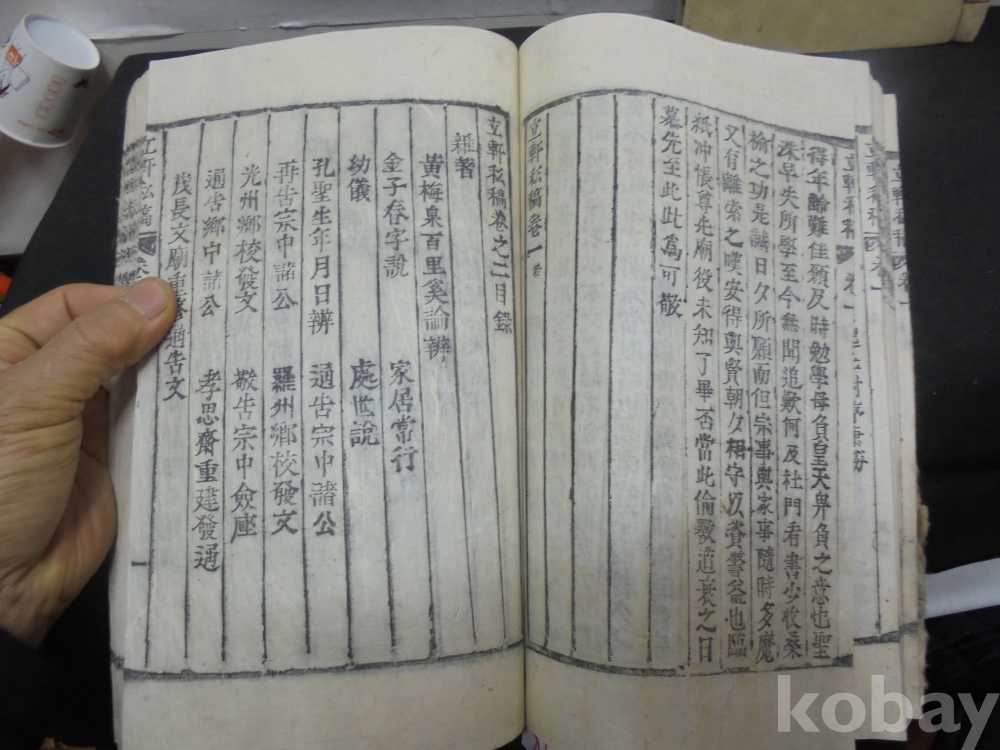 得年齡難住願及時勉學毋負皇天畀負之意也聖
深早失所學至今無聞追歎何及杜門看書少收桑
榆之功是誠日夕所願而但宗事與家事隨時多魔
又有離索之嘆安得與賢朝夕相守以資警益也臨
紙冲悵尊先廟役未知了畢否當此倫斁道衰之日
慕先至此此爲可敬
立軒私稿卷一 終
立軒私稿卷之二目錄
雜著
黃梅泉百里奚論辨
金子春字說 家居常行
幼儀 處世說
孔聖生年月日辨 通告宗中諸公
再告宗中諸公 羅州鄉校發文
光州鄉校發文 敬告宗中僉座
通告鄉中諸公 孝思齋重建發通
茂長文廟重修通告文
立軒私稿
一
kobay